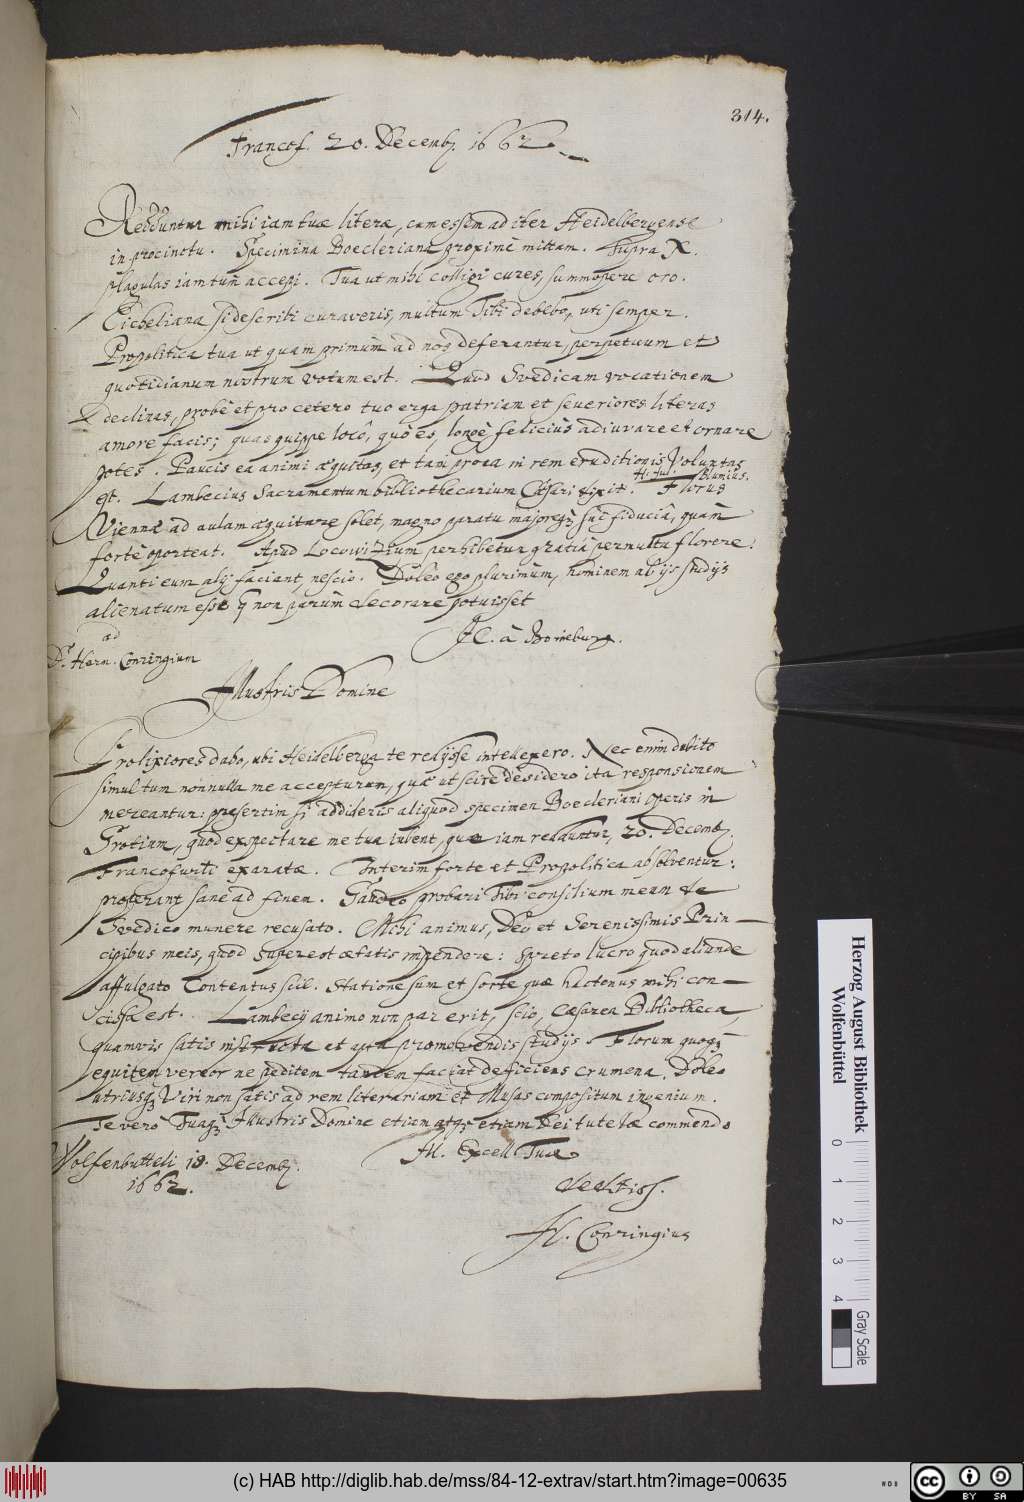 314.
Francof. 20. Decemb. 1662.
Redduntur mihi iam tuæ literæ, cum essem ad iter Heidelbergense
in procinctu. Specimina Boecleriana proximè mittam. Supra X.
plagulas iam tum accepi. Tua ut mihi colligi cures, summopere oro.
Eicheliana si describi curaveris, multum Tibi debebo, uti semper.
Propolitica tua ut quam primum ad nos deferantur, perpetuum et
quotidianum nostrum votum est. Quod Svedicam vocationem
declinas, probè et pro cetero tuo erga patriam et severiores literas
amore facis; quas quippe locô, quô es, longè feliciùs adiuvare et ornare
potes. Paucis ea animi æquitas, et tam prona in rem eruditionis voluntas
est. Lambecius Sacramentum bibliothecarium Cæsari dixit. Florus
H. Jul. Blumius.
Viennæ ad aulam æquitare solet, magno paratu majoreq; sui fiduciâ, quàm
fortè oporteat. Apud Locowizium perhibetur gratiâ permultu florere.
Quanti eum alij faciant, nescio. Doleo ego plurimùm, hominem ab ijs studijs
alienatum esse q non parùm decorare potuisset
JC. à Boineburg.
ad
Dn. Herm. Conringium
Illustris Domine
Prolixiores dabo, ubi Heidelberga te redijsse intellexero. Nec enim dubito
simul tum nonnulla me accepturum, quæ ut scire desidero ita responsionem
mereantur: præsertim si addideris aliquod specimen Boecleriani operis in
Grotium, quod exspectare me tua iubent, quæ iam redduntur, 20. Decemb.
Francofurti exaratæ. Interim forte et Propolitica absolventur:
properant sane ad finem. Gaudeo probari Tibi consilium meum de
Svedico munere recusato. Mihi animus, Deo et Serenissimis Prin-
cipibus meis, quod superest ætatis impendere: spreto lucro quod aliunde
affulgat. Contentus scil. statione sum et sorte quæ hactenus mihi con-
cissa est. Lambecij animo non par erit, scio, Cæsarea Bibliotheca,
quamvis satis instructa et apta promovendis studijs. Florum quoq;
equitem vereor ne peditem tandem faciat deficiens crumena. Doleo
utriusq; Viri non satis ad rem literariam et Musas compositum ingenium.
Te verò Tuaq; Illustris Domine etiam atq; etiam Dei tutelæ commendo
Wolfenbutteli 18. Decemb.
1662.
Ill. Excell Tuæ
deditiss.
H. Conringius
Herzog August Bibliothek
Wolfenbüttel
0 1 2 3 4
Gray Scale
(c) HAB http://diglib.hab.de/mss/84-12-extrav/start.htm?image=00635
cc BY SA